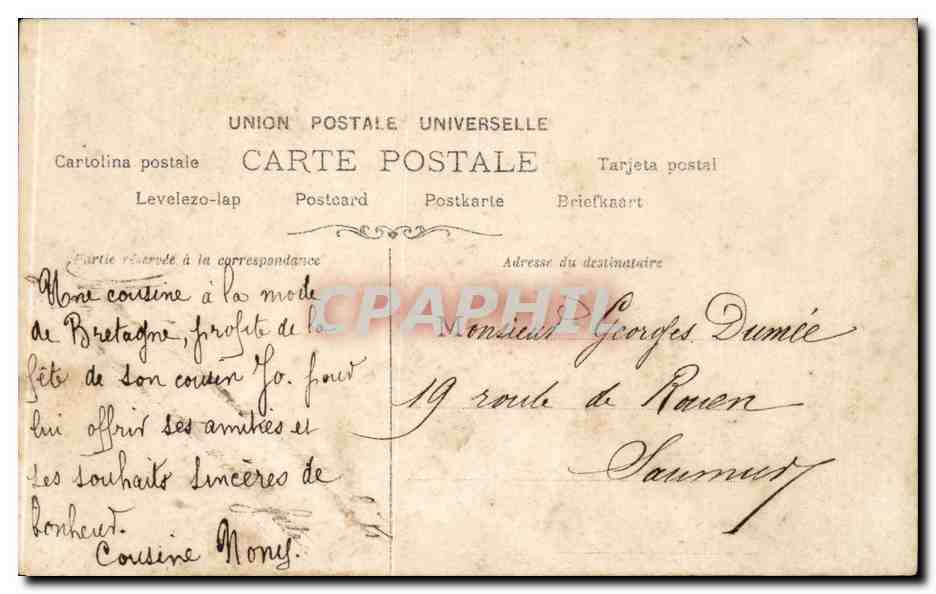 UNION POSTALE UNIVERSELLE
Cartolina postale CARTE POSTALE Tarjeta postal
Levelezo-lap Postcard Postkarte Briefkaart
Partie réservée à la correspondance
Adresse du destinataire
Une cousine à la mode
de Bretagne, profite de la
fête de son cousin Jo. pour
lui offrir ses amitiés et
ses souhaits sincères de
bonheur.
Cousine Nony.
Monsieur Georges Dumée
19 route de Rouen
Saumur
CPAPHIL